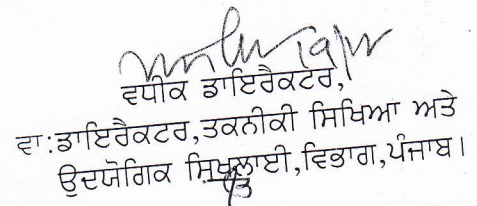 ਵਧੀਕ ਡਾਇਰੈਕਟਰ,
ਵਾ:ਡਾਇਰੈਕਟਰ,ਤਕਨੀਕੀ ਸਿਖਿਆ ਅਤੇ
ਉਦਯੋਗਿਕ ਸਿਖਲਾਈ,ਵਿਭਾਗ,ਪੰਜਾਬ।